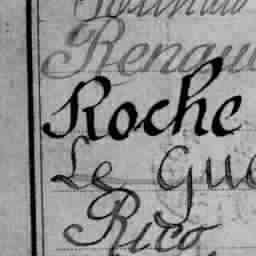 Renau
Roche
Le Gue
Rico